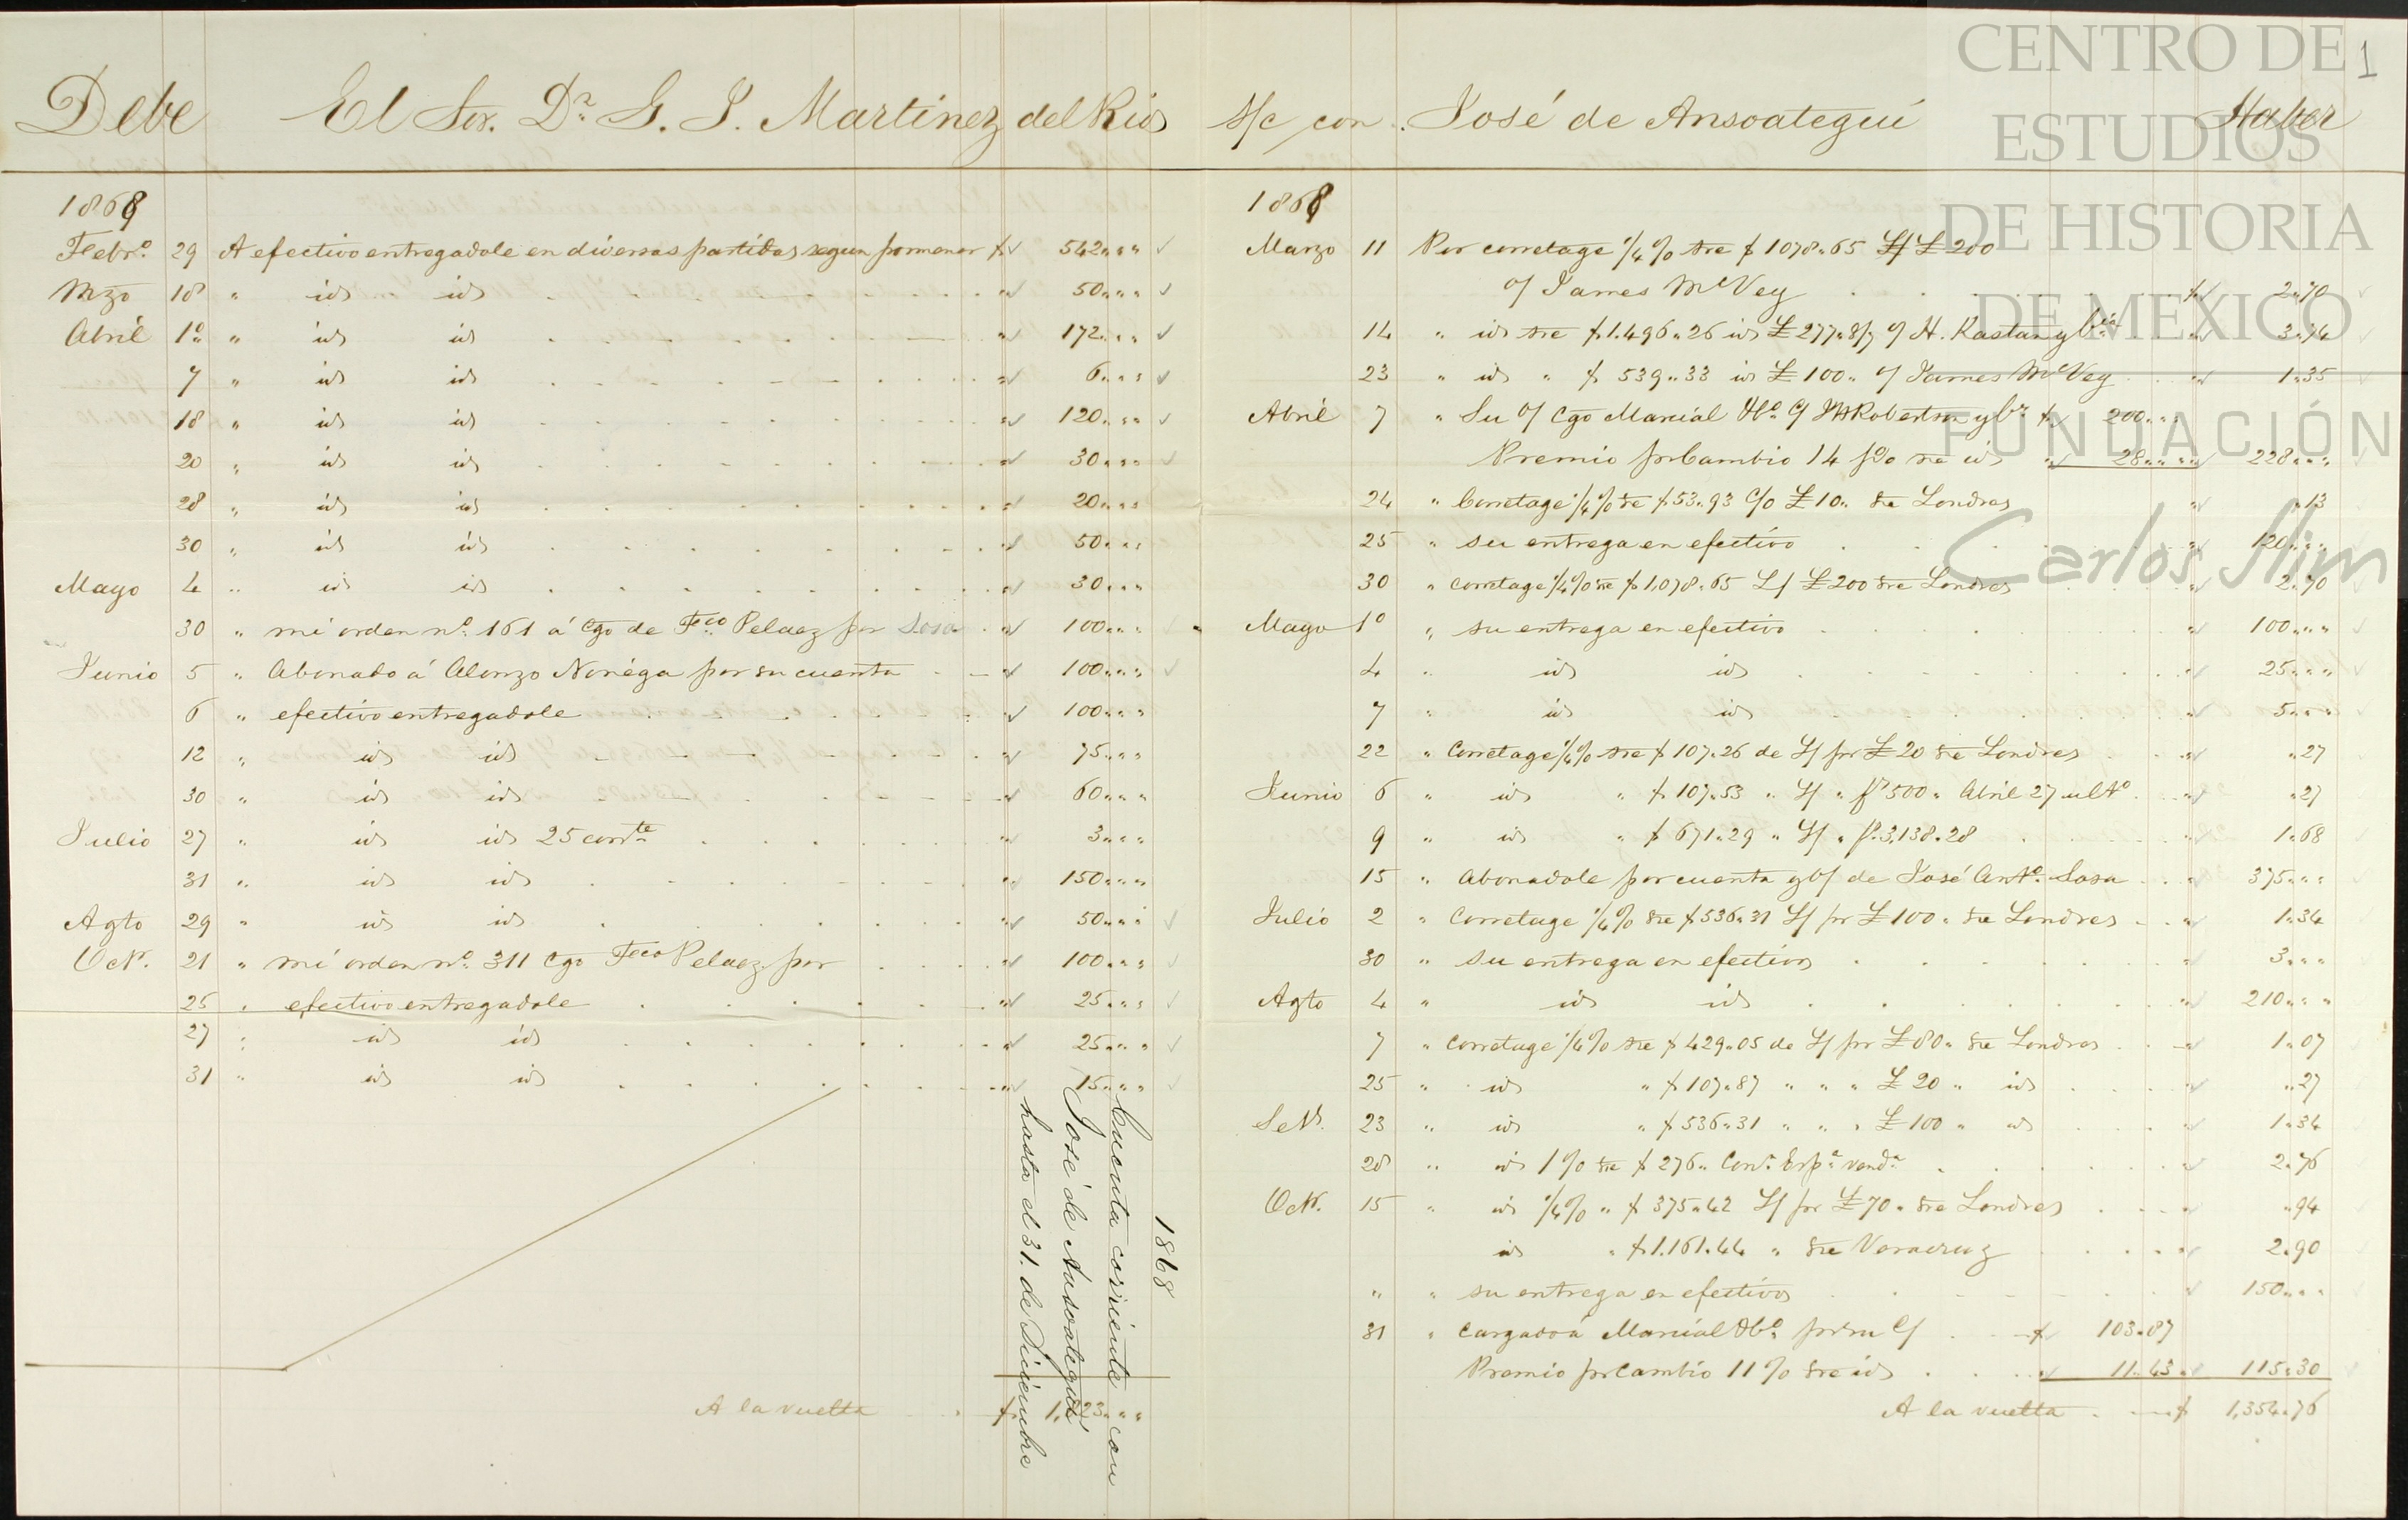 Debe El Sor. Dr. G. J. Martinez del Rio
1868
Febro. 29 A efectivo entregadole en diversas partidas segun pormenor $ 542 " "
Mzo 18 " id id " 50 " "
Abril 1o " id id " 172 " "
7 " id id " 6 " "
18 " id id " 120 " "
20 " id id " 30 " "
28 " id id " 20 " "
30 " id id " 50 " "
Mayo 4 " id id " 30 " "
30 " mi orden no. 161 á cgo de Fco Pelaez por Sosa " 100 " "
Junio 5 " Abonado á Alonzo Noriega por su cuenta " 100 " "
6 " efectivo entregadole " 100 " "
12 " id id " 75 " "
30 " id id " 60 " "
Julio 27 " id id 25 corrte " 3 " "
31 " id id " 150 " "
Agto 29 " id id " 50 " "
Oct. 21 " mi orden no. 311 cgo Fco Pelaez por " 100 " "
25 " efectivo entregadole " 25 " "
27 " id id " 25 " "
31 " id id " 15 " "
A la vuelta $ 1, 23 " "
1868
Cuenta corriente con
José de Ansoategui
hasta el 31. de Diciembre
S/c con José de Ansoategui Haber
1
1868
Marzo 11 Por corretage 1/4 % sre $ 1078 " 65 L/ £ 200
c/ James McVey $ 2 " 70
14 " id sre $ 1.496 " 26 id £ 277 " 8/7 c/ H. Rastan y Cia " 3 " 74
23 " id " $ 539 " 33 id £ 100 " c/ James McVey " 1 " 35
Abril 7 " Su o/ cgo Marcial c/ Robertson y Ca $ 200 " "
Premio pr Cambio 14 p% sre id " 28 " " " 228 " "
24 " Corretage 1/4 % sre $ 53 " 93 c/o £ 10 " sre Londres " " 13
25 " su entrega en efectivo " 120 " "
30 " corretage 1/4 % sre $ 1,078 " 65 L/ £ 200 sre Londres " 2 " 70
Mayo 1o " su entrega en efectivo " 100 " "
4 " id id " 25 " "
7 " id id " 5 " "
22 " Corretage 1/4 % sre $ 107 " 26 de L/ pr £ 20 sre Londres " " 27
Junio 6 " id " $ 107 " 53 " L/ " fs 500 " Abril 27 ulto. " " 27
9 " id " $ 671 " 29 " L/ " f. 3,138 " 28 " 1 " 68
15 " Abonadole por cuenta y o/ de José Anto. Sosa " 375 " "
Julio 2 " Corretage 1/4 % sre $ 536 " 31 L/ pr £ 100 " sre Londres " 1 " 34
30 " su entrega en efectivo " 3 " "
Agto 4 " id id " 210 " "
7 " corretage 1/4 % sre $ 429 " 05 de L/ pr £ 80 " sre Londres " 1 " 07
25 " id " $ 107 " 87 " " " £ 20 " id " " 27
Set. 23 " id " $ 536 " 31 " " " £ 100 " id " 1 " 34
28 " id 1 % sre $ 276 " Conv. Espa. vendo " 2 " 76
Oct. 15 " id 1/4 % " $ 375 " 42 L/ pr £ 70 " sre Londres " " 94
id " $ 1.161 " 44 " sre Veracruz " 2 " 90
" " su entrega en efectivo " 150 " "
31 " Cargado á Marcial pr su c/ $ 103 " 87
Premio pr Cambio 11 % sre id " 11 " 43 " 115 " 30
A la vuelta $ 1,354 " 76
CENTRO DE
ESTUDIOS
DE HISTORIA
DE MEXICO
FUNDACIÓN
Carlos Slim